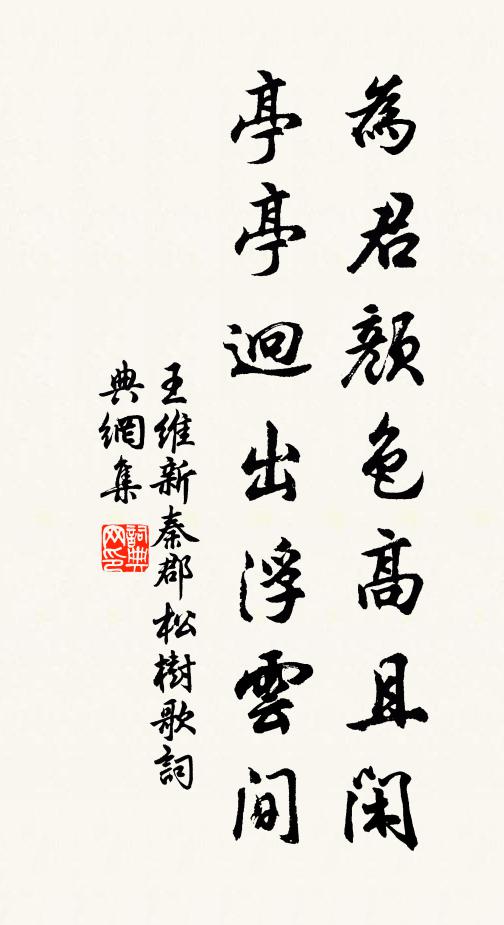 為君顏色高且閑
亭亭迥出浮雲間
王維新秦郡松樹歌詞
典網集
詞典
網印